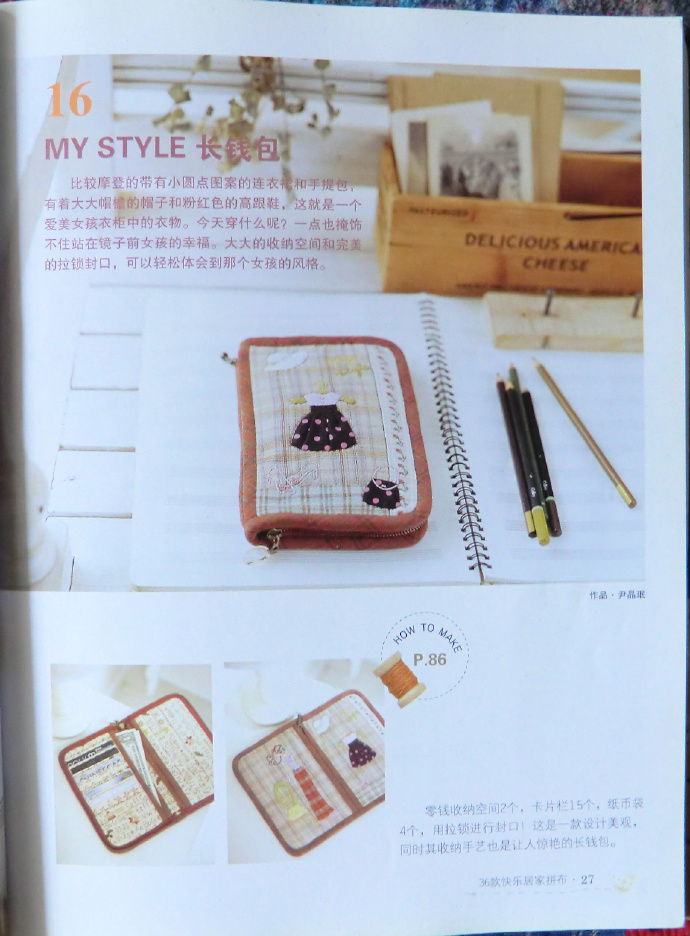 16
MY STYLE 长钱包
比较摩登的带有小圆点图案的连衣裙和手提包，
有着大大帽檐的帽子和粉红色的高跟鞋，这就是一个
爱美女孩衣柜中的衣物。今天穿什么呢？一点也掩饰
不住站在镜子前女孩的幸福。大大的收纳空间和完美
的拉锁封口，可以轻松体会到那个女孩的风格。
DELICIOUS AMERICA
CHEESE
作品·尹晶珉
HOW TO MAKE
P.86
零钱收纳空间2个，卡片栏15个，纸币袋
4个，用拉锁进行封口！这是一款设计美观，
同时其收纳手艺也是让人惊艳的长钱包。
36款快乐居家拼布·27